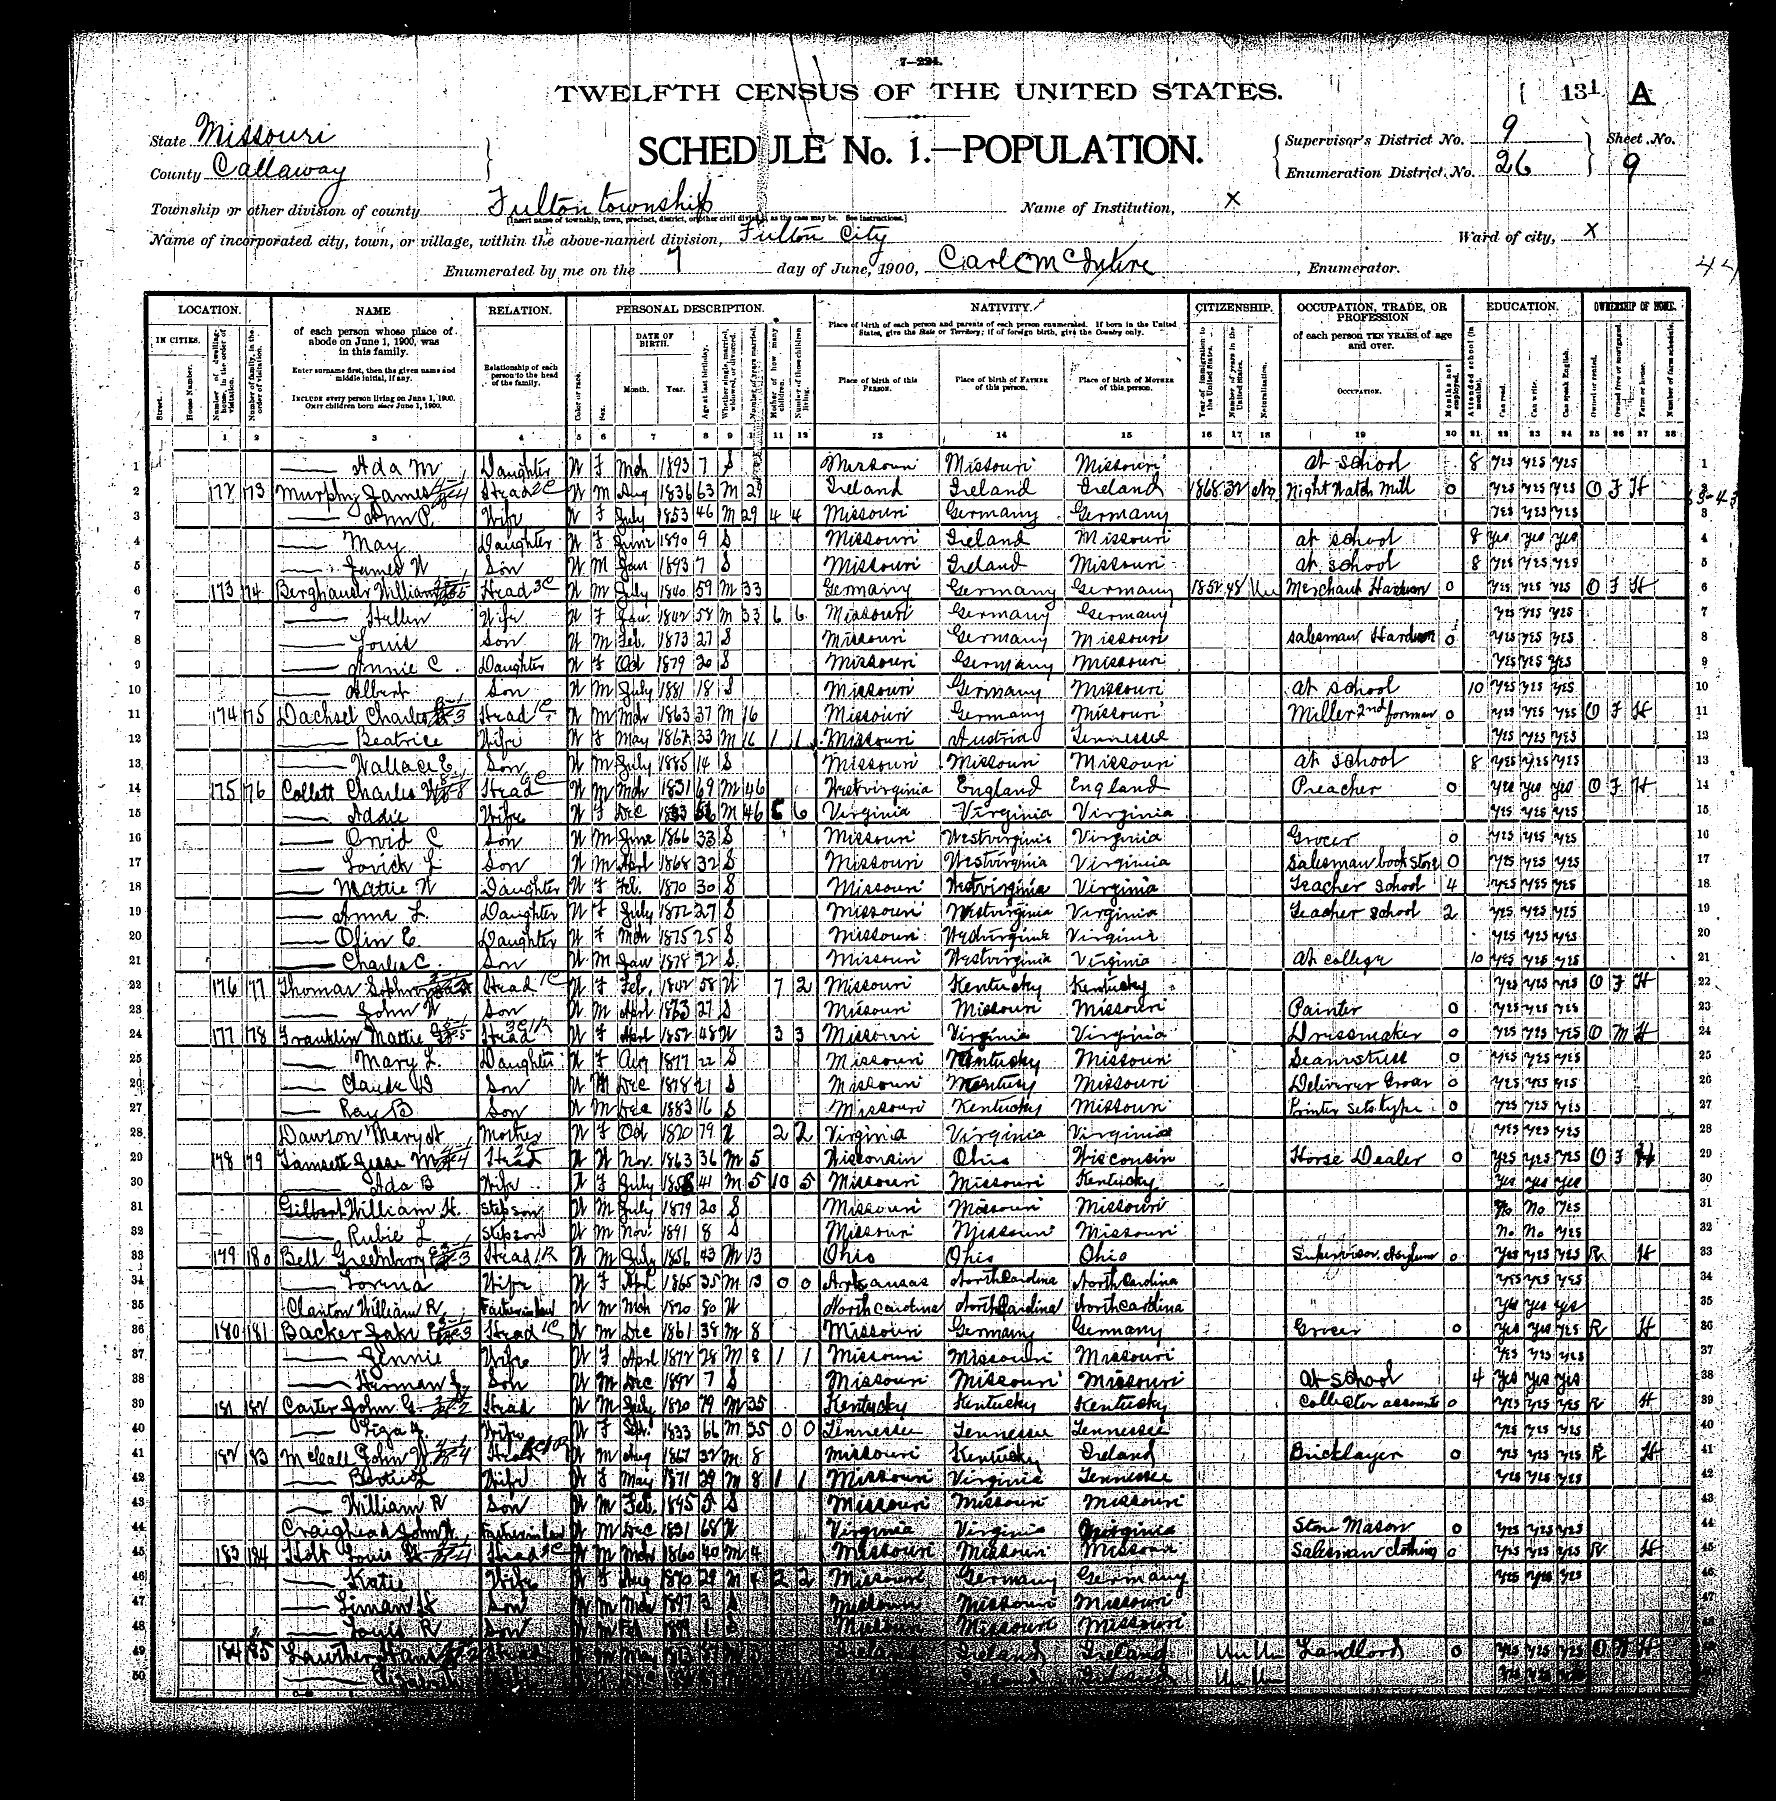 7—224.
TWELFTH CENSUS OF THE UNITED STATES.
131 A
State Missouri
County Callaway
SCHEDULE No. 1.—POPULATION.
Supervisor's District No. 9
Enumeration District No. 26
Sheet No. 9
Township or other division of county Fulton township
[Insert name of township, town, precinct, district, or other civil division, as the case may be. See instructions.]
Name of Institution, X
Name of incorporated city, town, or village, within the above-named division, Fulton City
Ward of city, X
Enumerated by me on the 7 day of June, 1900, Carl McIntire, Enumerator.
LOCATION. NAME RELATION. PERSONAL DESCRIPTION. NATIVITY. CITIZENSHIP. OCCUPATION, TRADE, OR PROFESSION EDUCATION. OWNERSHIP OF HOME.
IN CITIES. of each person whose place of abode on June 1, 1900, was in this family.
Enter surname first, then the given name and middle initial, if any.
INCLUDE every person living on June 1, 1900. OMIT children born since June 1, 1900.
Relationship of each person to the head of the family.
DATE OF BIRTH. Month. Year.
Place of birth of each person and parents of each person enumerated. If born in the United States, give the State or Territory; if of foreign birth, give the Country only.
Place of birth of this PERSON. Place of birth of FATHER of this person. Place of birth of MOTHER of this person.
of each person TEN YEARS of age and over.
OCCUPATION.
1 2 3 4 5 6 7 8 9 11 12 13 14 15 16 17 18 19 20 21 22 23 24 25 26 27 28
1 Ada M Daughter W F Mch 1893 7 S Missouri Missouri Missouri at school 8 yes yes yes 1
2 172 173 Murphy James Head W M Aug 1836 63 M 29 Ireland Ireland Ireland 1868 32 Night Watch Mill 0 yes yes yes O F H
3 Ann P. Wife W F July 1853 46 M 29 4 4 Missouri Germany Germany yes yes yes 3
4 May Daughter W F June 1890 9 S Missouri Ireland Missouri at school 8 yes yes yes 4
5 James W Son W M Jan 1893 7 S Missouri Ireland Missouri at school 8 yes yes yes 5
6 173 174 Berghauser William Head W M July 1840 59 M 33 Germany Germany Germany 1852 48 Un Merchant Hardware 0 yes yes yes O F H 6
7 Hellen Wife W F Jan. 1842 58 M 33 6 6 Missouri Germany Germany yes yes yes 7
8 Louis Son W M Feb. 1873 27 S Missouri Germany Missouri salesman Hardware 0 yes yes yes 8
9 Annie C. Daughter W F Oct 1879 20 S Missouri Germany Missouri yes yes yes 9
10 Albert Son W M July 1881 18 S Missouri Germany Missouri at school 10 yes yes yes 10
11 174 175 Dachsel Charles Head W M Mch 1863 37 M 16 Missouri Germany Missouri Miller 2nd forman 0 yes yes yes O F H 11
12 Beatrice Wife W F May 1867 33 M 16 1 1 Missouri Austria Tennessee yes yes yes 12
13 Wallace E. Son W M July 1885 14 S Missouri Missouri Missouri at school 8 yes yes yes 13
14 175 176 Collett Charles W Head W M Mch 1831 69 M 46 Westvirginia England England Preacher 0 yes yes yes O F H 14
15 Addie Wife W F Dec M 46 6 6 Virginia Virginia Virginia yes yes yes 15
16 Orvid C Son W M June 1866 33 S Missouri Westvirginia Virginia Grocer 0 yes yes yes 16
17 Lovick L Son W M Aprl 1868 32 S Missouri Westvirginia Virginia Salesman book store 0 yes yes yes 17
18 Mattie W Daughter W F Feb. 1870 30 S Missouri Westvirginia Virginia Teacher school 4 yes yes yes 18
19 Anna L. Daughter W F July 1872 27 S Missouri Westvirginia Virginia Teacher school 2 yes yes yes 19
20 Olin E. Daughter W F Mch 1875 25 S Missouri Westvirginia Virginia yes yes yes 20
21 Charles C. Son W M Jan 1878 22 S Missouri Westvirginia Virginia at college 10 yes yes yes 21
22 176 177 Thomas Head W F Feb. 1842 58 W 7 2 Missouri Kentucky Kentucky yes yes yes O F H 22
23 John W Son W M Aprl 1873 27 S Missouri Missouri Missouri Painter 0 yes yes yes 23
24 177 178 Franklin Mattie Head W F Aprl 1852 48 W 3 3 Missouri Virginia Virginia Dressmaker 0 yes yes yes O M H 24
25 Mary L. Daughter W F Aug 1877 22 S Missouri Kentucky Missouri Seamstress 0 yes yes yes 25
26 Claude Son W M Dec 1878 21 S Missouri Kentucky Missouri Deliverer Grocer 0 yes yes yes 26
27 Ray B Son W M Dec 1883 16 S Missouri Kentucky Missouri Printer sets type 0 yes yes yes 27
28 Dawson Mary H Mother W F Oct 1820 79 W 2 2 Virginia Virginia Virginia yes yes yes 28
29 178 179 Tamsett Jesse M Head W M Nov. 1863 36 M 5 Wisconsin Ohio Wisconsin Horse Dealer 0 yes yes yes O F H 29
30 Ada B Wife W F July 1858 41 M 5 10 5 Missouri Missouri Kentucky yes yes yes 30
31 Gilbert William H. Stepson W M July 1879 20 S Missouri Missouri Missouri No No yes 31
32 Rubie L Stepson W M Nov. 1891 8 S Missouri Missouri Missouri No No yes 32
33 179 180 Bell Greenberry Head W M July 1856 43 M 13 Ohio Ohio Ohio Supervisor Asylum 0 yes yes yes R H 33
34 Lorena Wife W F Apr. 1865 35 M 13 0 0 Arkansas North Carolina North Carolina yes yes yes 34
35 Clanton William R. Father in law W M Mch 1820 80 W North Carolina North Carolina North Carolina yes yes yes 35
36 180 181 Backer Jake Head W M Dec 1861 38 M 8 Missouri Germany Germany Grocer 0 yes yes yes R H 36
37 Jennie Wife W F Aprl 1872 28 M 8 1 1 Missouri Missouri Missouri yes yes yes 37
38 Herman Son W M Dec 1892 7 S Missouri Missouri Missouri at school 4 yes yes yes 38
39 181 182 Carter John G. Head W M July 1820 79 M 35 Kentucky Kentucky Kentucky Collector accounts 0 yes yes yes R H 39
40 Wife W F Sep. 1833 66 M 35 0 0 Tennessee Tennessee Tennessee yes yes yes 40
41 182 183 McCall John W Head W M Aug 1867 32 M 8 Missouri Kentucky Ireland Bricklayer 0 yes yes yes R H 41
42 Bertie L Wife W F May 1871 29 M 8 1 1 Missouri Virginia Tennessee yes yes yes 42
43 William R Son W M Feb. 1895 5 S Missouri Missouri Missouri 43
44 Craighead John W. Father in law W M Dec 1831 68 W Virginia Virginia Virginia Stone Mason 0 yes yes yes 44
45 183 184 Holt Louis Head W M Mch 1860 40 M 4 Missouri Missouri Missouri Salesman clothing 0 yes yes yes R H 45
46 Katie Wife W F Aug 1870 29 M 4 2 2 Missouri Germany Germany yes yes yes 46
47 Son W M Mch 1897 3 S Missouri Missouri Missouri 47
48 Louis R Son W M 1899 1 S Missouri Missouri Missouri 48
49 184 185 Head Ireland Ireland Ireland Un Un Landlord 0 yes yes yes O H
50